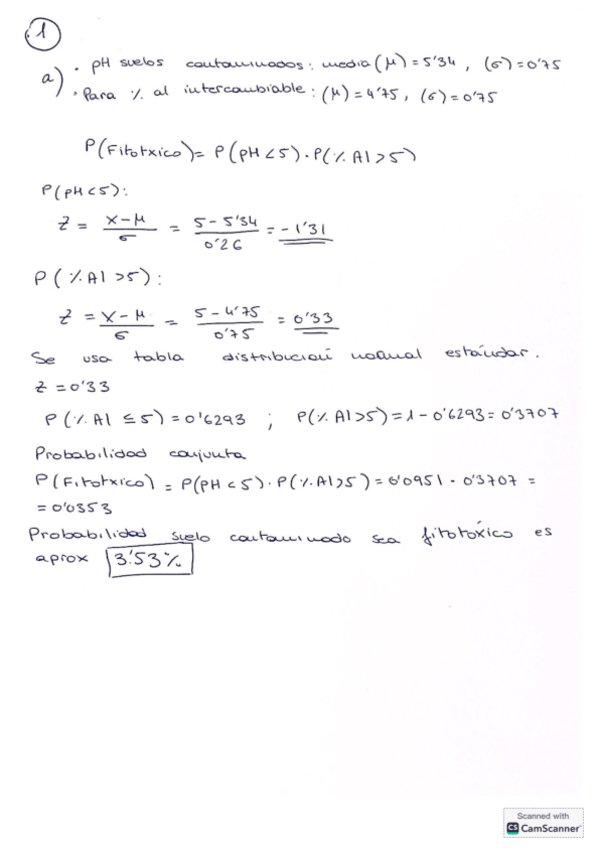 1
a) · pH suelos contaminados: media (μ) = 5'34, (σ) = 0'75
· Para % al intercambiable: (μ) = 4'75, (σ) = 0'75
P(Fitotxico) = P(pH < 5) · P(% Al > 5)
P(pH < 5):
Z = x-μ / σ = 5 - 5'34 / 0'26 = -1'31
P(% Al > 5):
Z = x-μ / σ = 5 - 4'75 / 0'75 = 0'33
Se usa tabla distribución normal estándar.
Z = 0'33
P(% Al ≤ 5) = 0'6293 ; P(% Al > 5) = 1 - 0'6293 = 0'3707
Probabilidad conjunta
P(Fitotxico) = P(pH < 5) · P(% Al > 5) = 0'0951 · 0'3707 =
= 0'0353
Probabilidad suelo contaminado sea fitotóxico es
aprox 3'53%
Scanned with
CS CamScanner